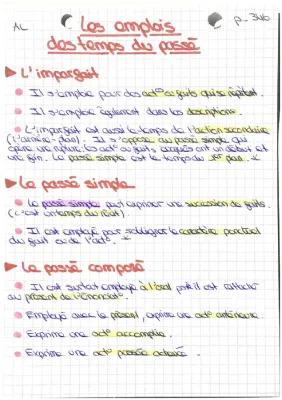 AL
p. 346
Les emplois
des temps du passé
L'imparfait
Il s'emploie pour des act° ou faits qui se répètent.
Il s'emploie également dans les descriptions.
L'imparfait est aussi le temps de l'action secondaire
(l'arrière-plan). Il s'oppose au passé simple qui
opère une rupture, les act° ou faits, auxquels ont un début et
une fin. Le passé simple est le temps du 1er plan.
Le passé simple
Le passé simple peut exprimer une succession de faits.
(c'est un temps du récit)
Il est employé pour souligner le caractère ponctuel
du fait ou de l'act°.
Le passé composé
Il est surtout employé à l'oral il est rattaché
au présent de l'énonciat°.
Employé avec le présent, exprime une act° antérieure.
Exprime une act° accomplie.
Exprime une act° passée achevée.